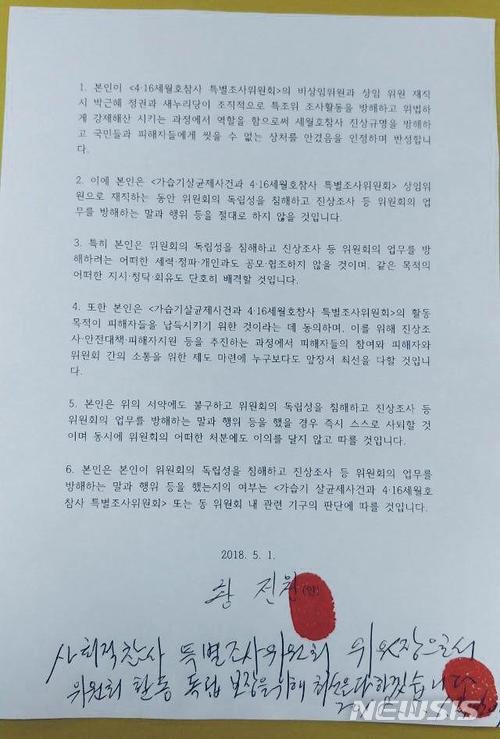 1. 본인이 <4·16세월호참사 특별조사위원회>의 비상임위원과 상임 위원 재직
시 박근혜 정권과 새누리당이 조직적으로 특조위 조사활동을 방해하고 위법하
게 강제해산 시키는 과정에서 역할을 함으로써 세월호참사 진상규명을 방해하
고 국민들과 피해자들에게 씻을 수 없는 상처를 안겼음을 인정하며 반성합니
다.
2. 이에 본인은 <가습기살균제사건과 4·16세월호참사 특별조사위원회> 상임위
원으로 재직하는 동안 위원회의 독립성을 침해하고 진상조사 등 위원회의 업
무를 방해하는 말과 행위 등을 절대로 하지 않을 것입니다.
3. 특히 본인은 위원회의 독립성을 침해하고 진상조사 등 위원회의 업무를 방
해하려는 어떠한 세력·정파·개인과도 공모·협조하지 않을 것이며, 같은 목적의
어떠한 지시·청탁·회유도 단호히 배격할 것입니다.
4. 또한 본인은 <가습기살균제사건과 4·16세월호참사 특별조사위원회>의 활동
목적이 피해자들을 납득시키기 위한 것이라는 데 동의하며, 이를 위해 진상조
사·안전대책·피해자지원 등을 추진하는 과정에서 피해자들의 참여와 피해자와
위원회 간의 소통을 위한 제도 마련에 누구보다도 앞장서 최선을 다할 것입니
다.
5. 본인은 위의 서약에도 불구하고 위원회의 독립성을 침해하고 진상조사 등
위원회의 업무를 방해하는 말과 행위 등을 했을 경우 즉시 스스로 사퇴할 것
이며 동시에 위원회의 어떠한 처분에도 이의를 달지 않고 따를 것입니다.
6. 본인은 본인이 위원회의 독립성을 침해하고 진상조사 등 위원회의 업무를
방해하는 말과 행위 등을 했는지의 여부는 <가습기 살균제사건과 4·16세월호
참사 특별조사위원회> 또는 동 위원회 내 관련 기구의 판단에 따를 것입니다.
2018. 5. 1.
황 전원 (인)
사회적참사 특별조사위원회 위원장으로서
위원회 활동 독립 보장을 위해 최선을 다하겠습니다
NEWSIS